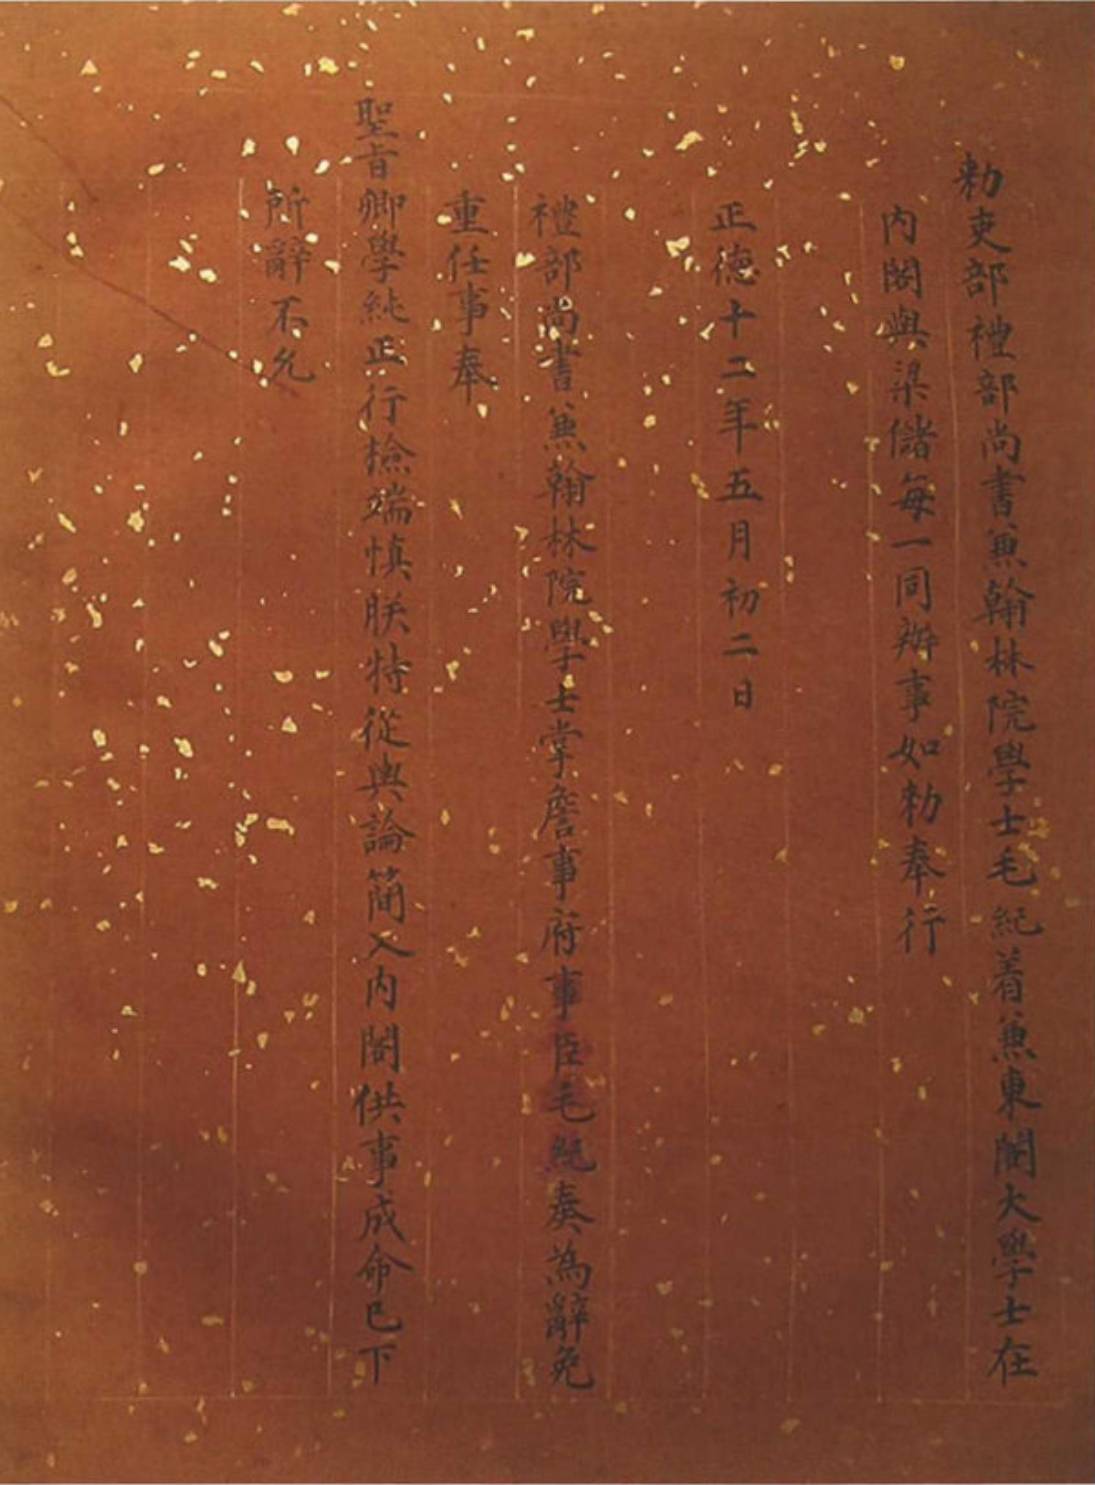 勑吏部禮部尚書兼翰林院學士毛紀着兼東閣大學士在
內閣與梁儲每一同辦事如勑奉行
正德十二年五月初二日
禮部尚書兼翰林院學士掌詹事府事臣毛紀奏為辭免
重任事奉
聖旨卿學純正行檢端慎朕特從輿論簡入內閣供事成命已下
所辭不允